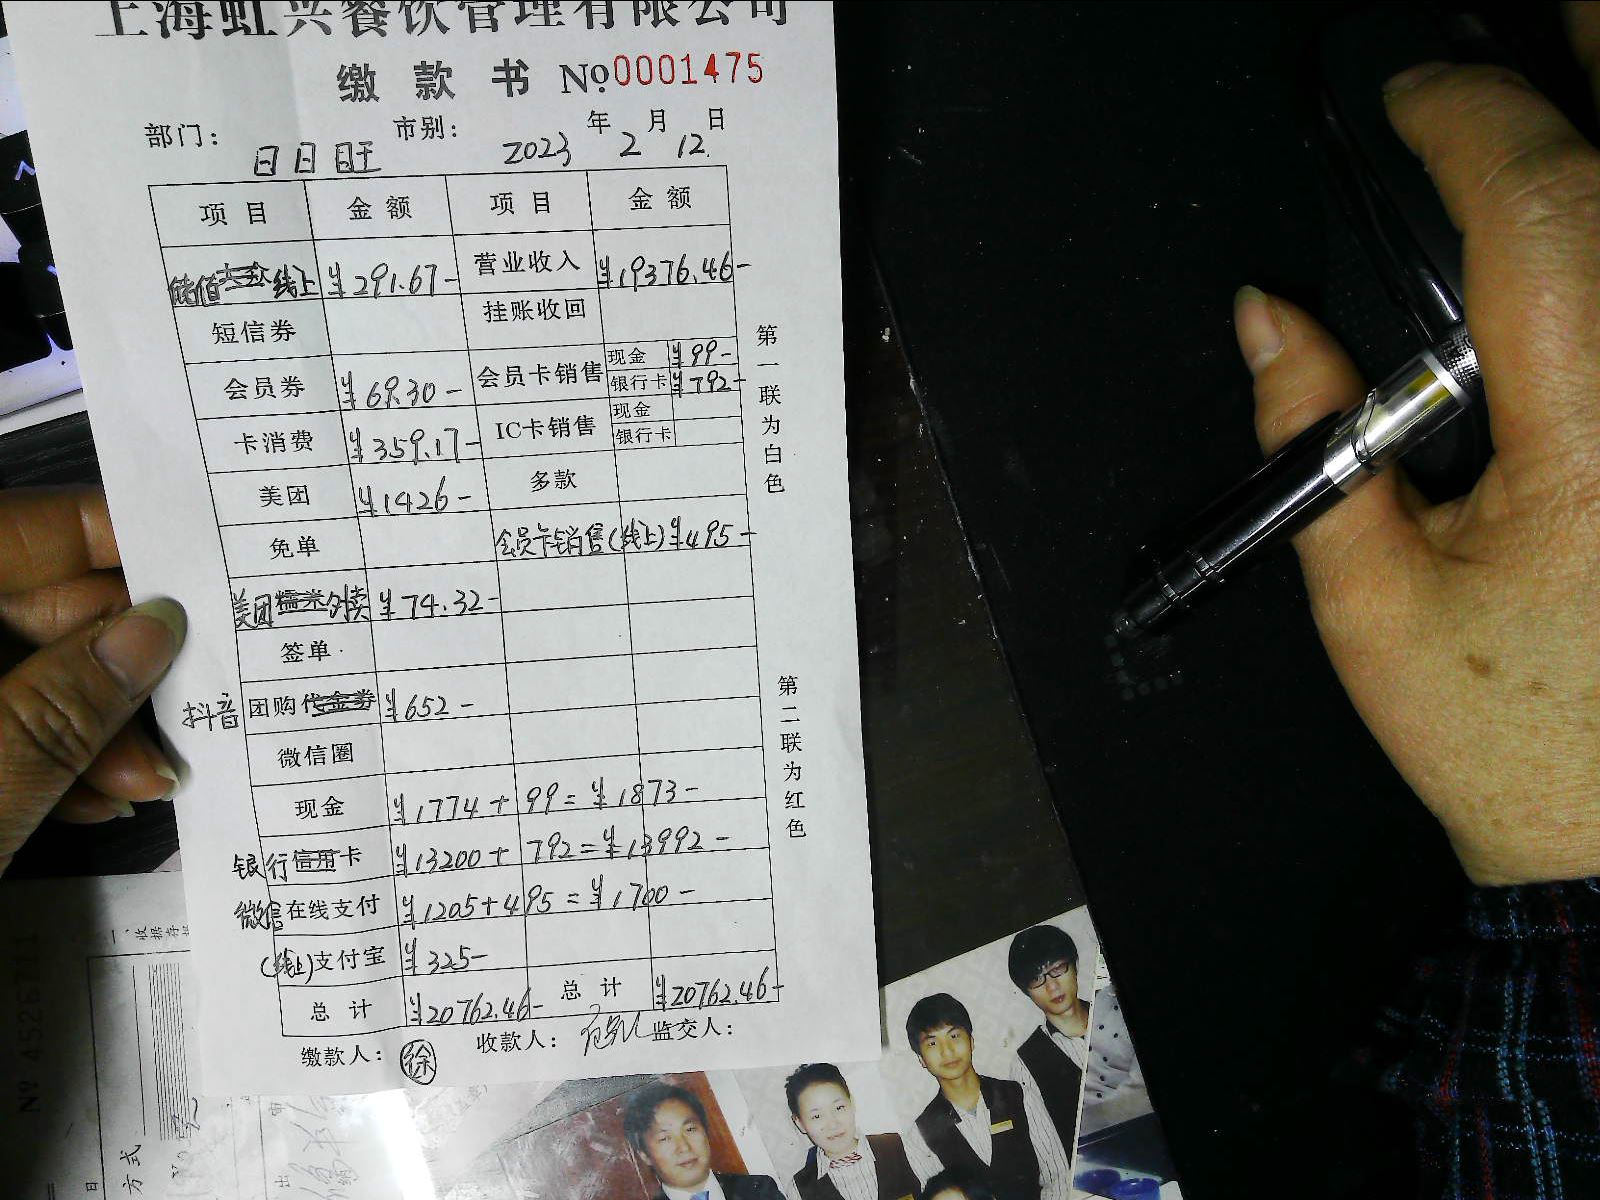 上海虹兴餐饮管理有限公司
缴款书 №0001475
部门： 日日旺 市别： 2023年2月12日
项目 金额 项目 金额
储值线上 ¥291.67- 营业收入 ¥19376.46-
短信券 挂账收回
会员券 ¥69.30- 会员卡销售 现金 ¥99-
银行卡 ¥792-
卡消费 ¥359.17- IC卡销售 现金
银行卡
美团 ¥1426- 多款
免单 会员卡销售(线上) ¥495-
美团糯米外卖 ¥74.32-
签单
抖音团购代金券 ¥652-
微信圈
现金 ¥1774+99=¥1873-
银行信用卡 ¥13200+792=¥13992-
微信在线支付 ¥1205+495=¥1700-
(线上)支付宝 ¥325-
总计 ¥20762.46- 总计 ¥20762.46-
缴款人： 徐 收款人： 监交人：
第一联为白色
第二联为红色
一、收据存
№ 4526711
方式
日
出